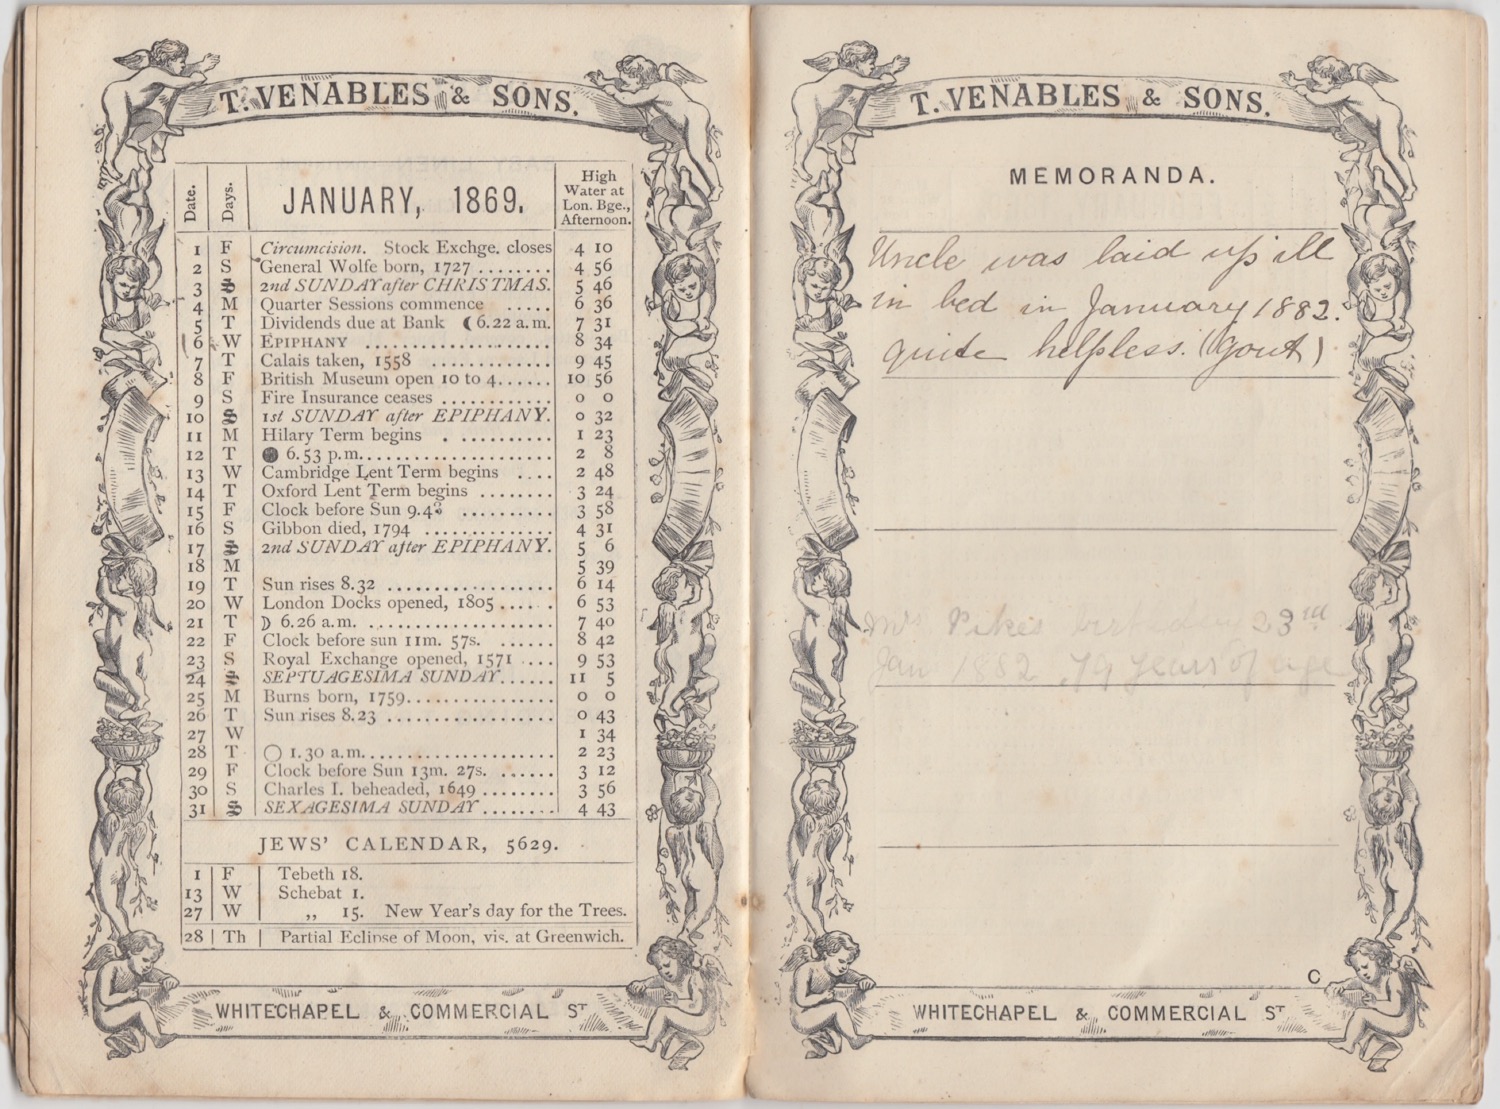 T. VENABLES & SONS.
Date. Days. JANUARY, 1869. High Water at Lon. Bge., Afternoon.
1 F Circumcision. Stock Exchge. closes 4 10
2 S General Wolfe born, 1727 ........ 4 56
3 S 2nd SUNDAY after CHRISTMAS. 5 46
4 M Quarter Sessions commence ..... 6 36
5 T Dividends due at Bank ☾ 6.22 a.m. 7 31
6 W EPIPHANY .................... 8 34
7 T Calais taken, 1558 ............ 9 45
8 F British Museum open 10 to 4...... 10 56
9 S Fire Insurance ceases ........... 0 0
10 S 1st SUNDAY after EPIPHANY. 0 32
11 M Hilary Term begins . .......... 1 23
12 T ● 6.53 p.m..................... 2 8
13 W Cambridge Lent Term begins .... 2 48
14 T Oxford Lent Term begins ........ 3 24
15 F Clock before Sun 9.43 ......... 3 58
16 S Gibbon died, 1794 .............. 4 31
17 S 2nd SUNDAY after EPIPHANY. 5 6
18 M 5 39
19 T Sun rises 8.32 .................. 6 14
20 W London Docks opened, 1805 ...... 6 53
21 T ☽ 6.26 a.m. .................... 7 40
22 F Clock before sun 11m. 57s. ....... 8 42
23 S Royal Exchange opened, 1571 .... 9 53
24 S SEPTUAGESIMA SUNDAY...... 11 5
25 M Burns born, 1759................ 0 0
26 T Sun rises 8.23 .................. 0 43
27 W 1 34
28 T ○ 1.30 a.m..................... 2 23
29 F Clock before Sun 13m. 27s. ...... 3 12
30 S Charles I. beheaded, 1649 ........ 3 56
31 S SEXAGESIMA SUNDAY........ 4 43
JEWS' CALENDAR, 5629.
1 F Tebeth 18.
13 W Schebat 1.
27 W ,, 15. New Year's day for the Trees.
28 Th Partial Eclipse of Moon, vis. at Greenwich.
WHITECHAPEL & COMMERCIAL ST
T. VENABLES & SONS.
MEMORANDA.
Uncle was laid up ill
in bed in January 1882.
quite helpless. (gout)
Mrs Pikes birthday 23rd
Jan 1882 79 years of age
C
WHITECHAPEL & COMMERCIAL ST